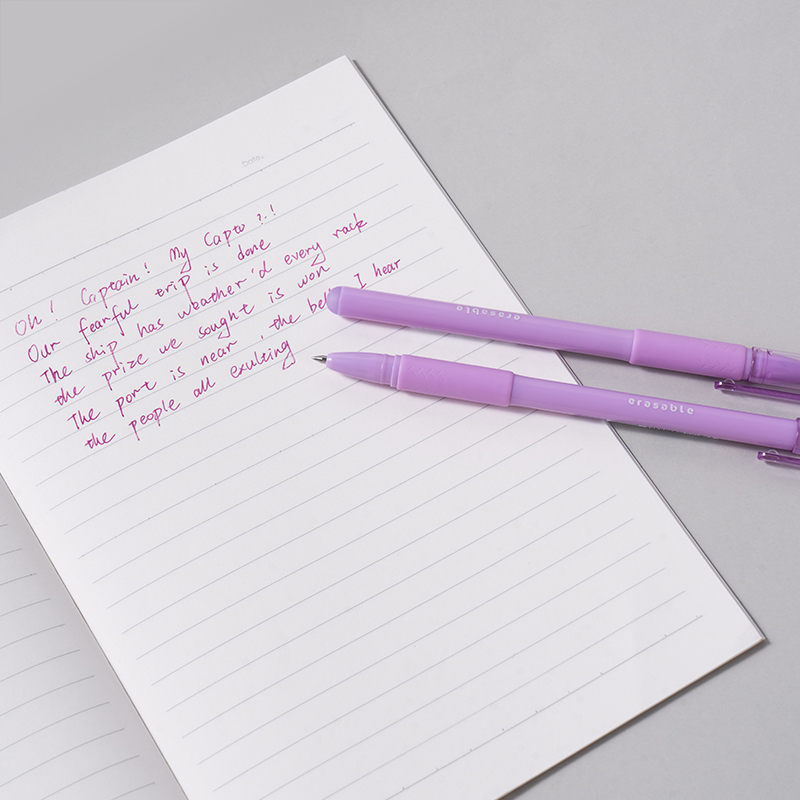 Date.
Oh! Captain! My Capta ?.!
Our fearful trip is done
The ship has weather'd every rack
the prize we sought is won
The port is near the bel I hear
the people all exulting
erasable
erasable